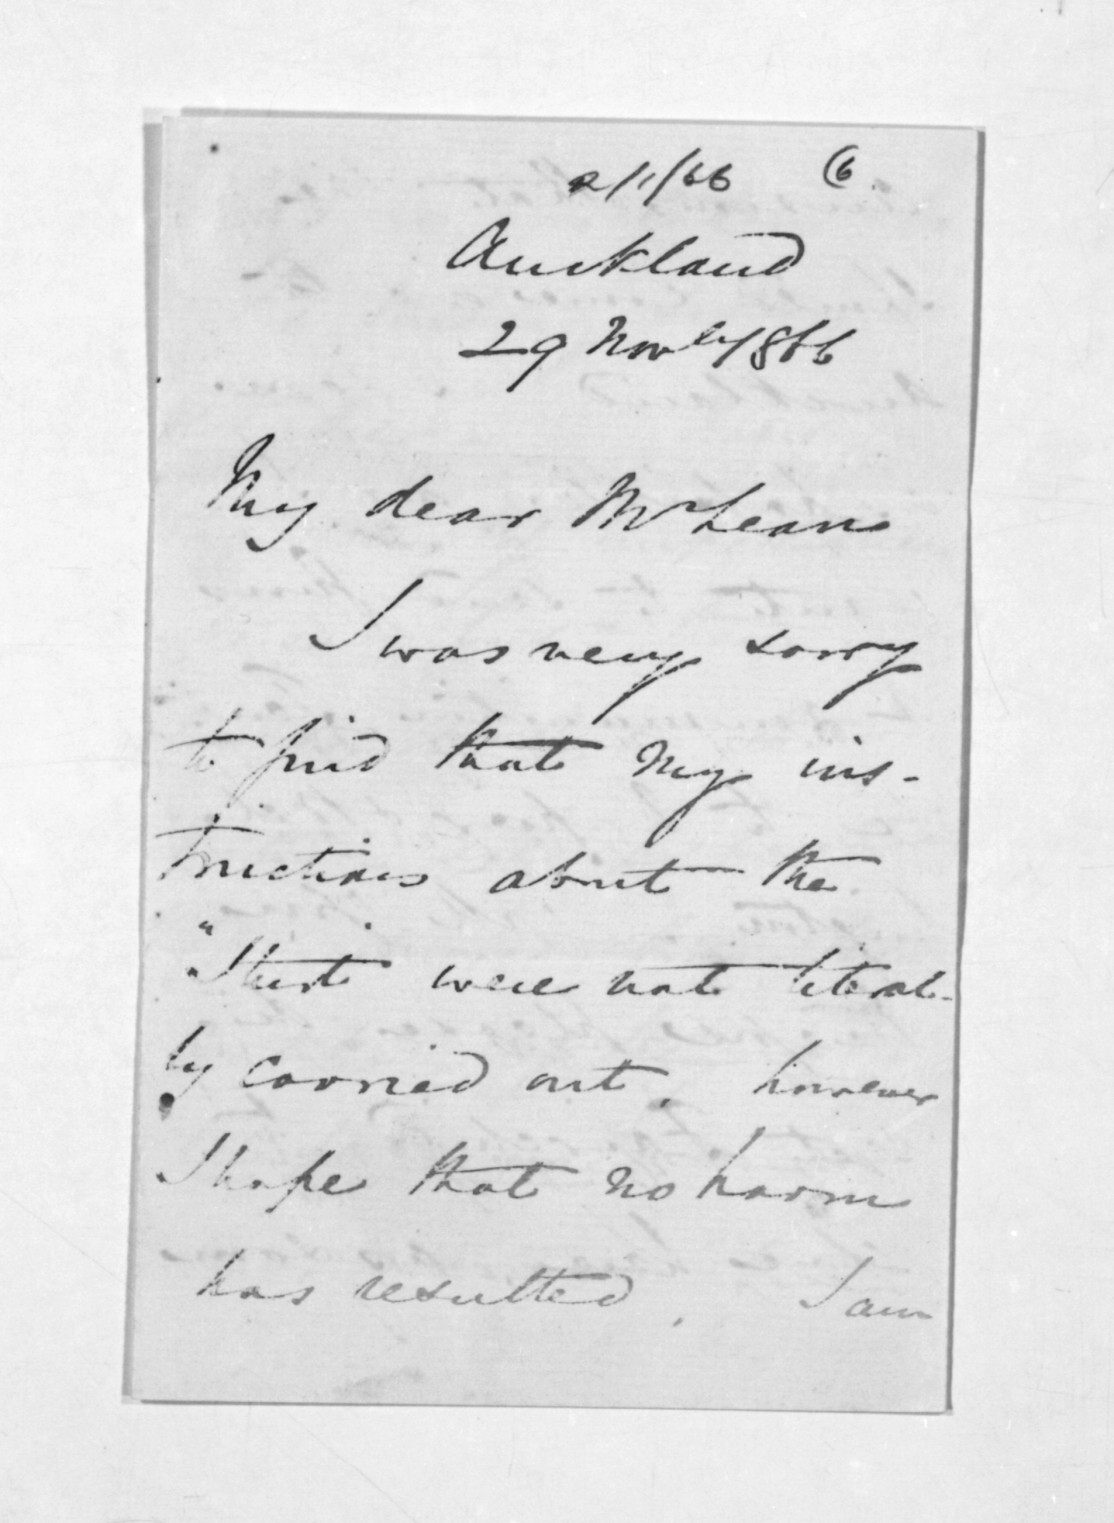 2/1/66 (6.
Auckland
29 Novbr 1866
My dear McLean
I was very sorry
to find that my ins-
tructions about the
"Sturt were not literal-
ly carried out. however
I hope that no harm
has resulted. I am